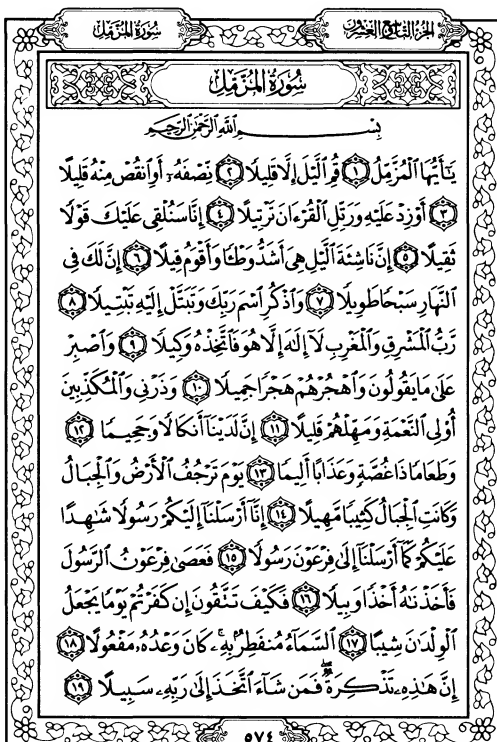 الجزء التاسع والعشرون
سُورَةُ المُزَّمِّل
سُورَةُ المُزَّمِّل
بِسْمِ ٱللَّهِ ٱلرَّحْمَٰنِ ٱلرَّحِيمِ
يَٰٓأَيُّهَا ٱلْمُزَّمِّلُ ۝١ قُمِ ٱلَّيْلَ إِلَّا قَلِيلًا ۝٢ نِّصْفَهُۥٓ أَوِ ٱنقُصْ مِنْهُ قَلِيلًا
۝٣ أَوْ زِدْ عَلَيْهِ وَرَتِّلِ ٱلْقُرْءَانَ تَرْتِيلًا ۝٤ إِنَّا سَنُلْقِى عَلَيْكَ قَوْلًا
ثَقِيلًا ۝٥ إِنَّ نَاشِئَةَ ٱلَّيْلِ هِىَ أَشَدُّ وَطْـًٔا وَأَقْوَمُ قِيلًا ۝٦ إِنَّ لَكَ فِى
ٱلنَّهَارِ سَبْحًا طَوِيلًا ۝٧ وَٱذْكُرِ ٱسْمَ رَبِّكَ وَتَبَتَّلْ إِلَيْهِ تَبْتِيلًا ۝٨
رَّبُّ ٱلْمَشْرِقِ وَٱلْمَغْرِبِ لَآ إِلَٰهَ إِلَّا هُوَ فَٱتَّخِذْهُ وَكِيلًا ۝٩ وَٱصْبِرْ
عَلَىٰ مَا يَقُولُونَ وَٱهْجُرْهُمْ هَجْرًا جَمِيلًا ۝١٠ وَذَرْنِى وَٱلْمُكَذِّبِينَ
أُو۟لِى ٱلنَّعْمَةِ وَمَهِّلْهُمْ قَلِيلًا ۝١١ إِنَّ لَدَيْنَآ أَنكَالًا وَجَحِيمًا ۝١٢
وَطَعَامًا ذَا غُصَّةٍ وَعَذَابًا أَلِيمًا ۝١٣ يَوْمَ تَرْجُفُ ٱلْأَرْضُ وَٱلْجِبَالُ
وَكَانَتِ ٱلْجِبَالُ كَثِيبًا مَّهِيلًا ۝١٤ إِنَّآ أَرْسَلْنَآ إِلَيْكُمْ رَسُولًا شَٰهِدًا
عَلَيْكُمْ كَمَآ أَرْسَلْنَآ إِلَىٰ فِرْعَوْنَ رَسُولًا ۝١٥ فَعَصَىٰ فِرْعَوْنُ ٱلرَّسُولَ
فَأَخَذْنَٰهُ أَخْذًا وَبِيلًا ۝١٦ فَكَيْفَ تَتَّقُونَ إِن كَفَرْتُمْ يَوْمًا يَجْعَلُ
ٱلْوِلْدَٰنَ شِيبًا ۝١٧ ٱلسَّمَآءُ مُنفَطِرٌۢ بِهِۦ ۚ كَانَ وَعْدُهُۥ مَفْعُولًا ۝١٨
إِنَّ هَٰذِهِۦ تَذْكِرَةٌ ۖ فَمَن شَآءَ ٱتَّخَذَ إِلَىٰ رَبِّهِۦ سَبِيلًا ۝١٩
٥٧٤